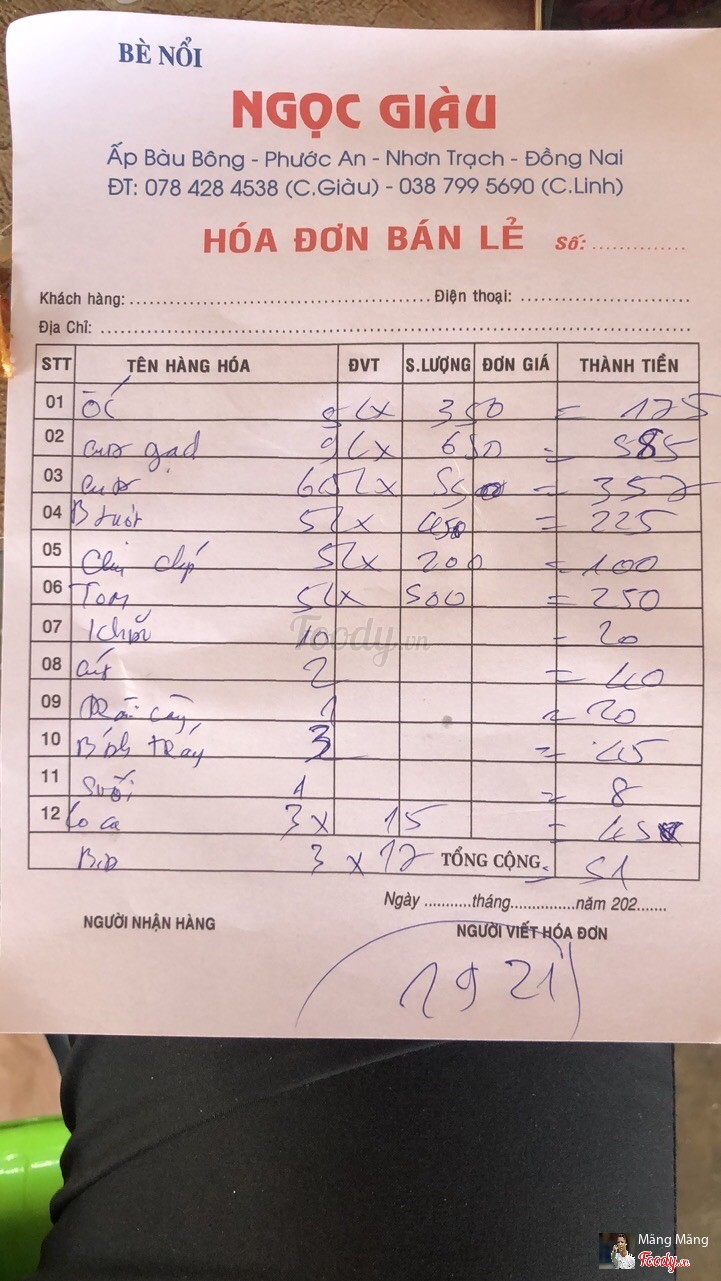 BÈ NỔI
NGỌC GIÀU
Ấp Bàu Bông - Phước An - Nhơn Trạch - Đồng Nai
ĐT: 078 428 4538 (C.Giàu) - 038 799 5690 (C.Linh)
HÓA ĐƠN BÁN LẺ Số: ...............
Khách hàng: ............................................. Điện thoại: ..........................
Địa Chỉ: .........................................................................................
STT TÊN HÀNG HÓA ĐVT S.LƯỢNG ĐƠN GIÁ THÀNH TIỀN
01 Ốc 5L x 350 = 175
02 cua gạch 9L x 650 = 585
03 cua 65L x 550 = 357
04 B tuột 5L x 450 = 225
05 Chip chíp 5L x 200 = 100
06 Tom 5L x 500 = 250
07 Khăn 10 = 20
08 2 = 40
09 trái cây 1 = 20
10 Bánh tráy 3 = 45
11 Suối 1 = 8
12 co ca 3 x 15 = 45
3 x 17 TỔNG CỘNG = 51
Ngày ...........tháng...............năm 202.......
NGƯỜI NHẬN HÀNG NGƯỜI VIẾT HÓA ĐƠN
1921
Foody.vn
Măng Măng
Foody.vn